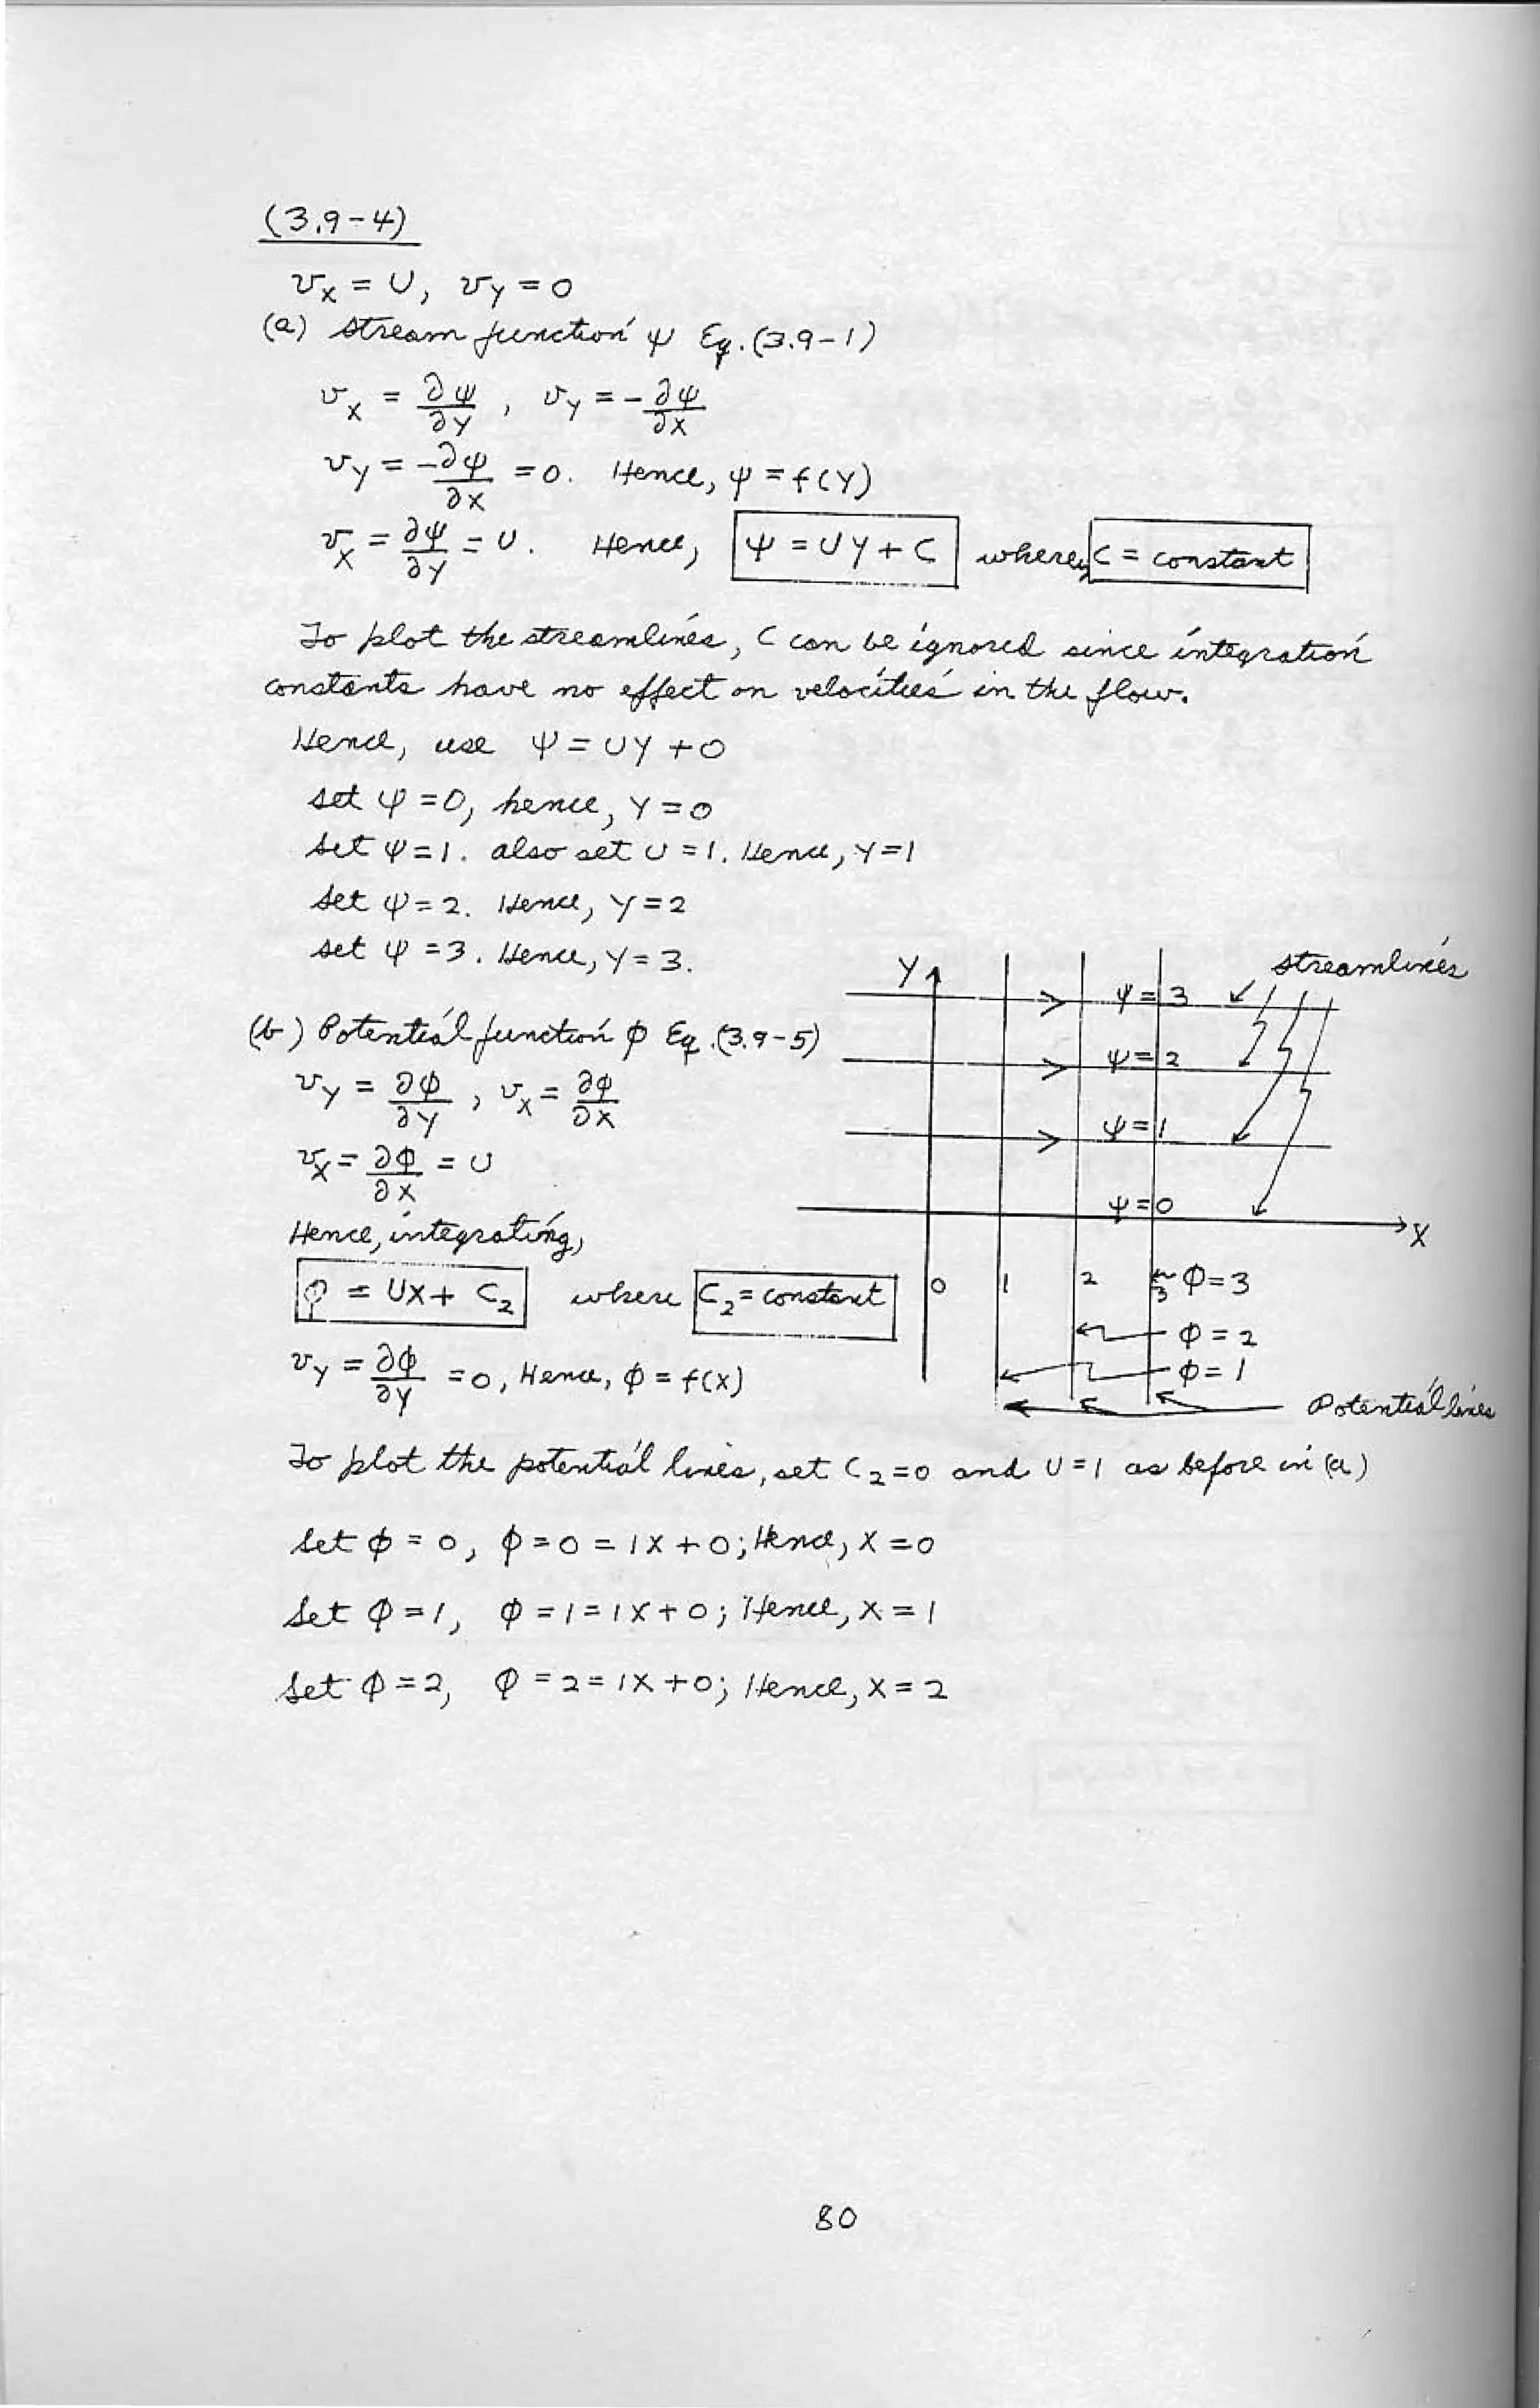 (3.9-4)
v_x = U, v_y = 0
(a) stream function ψ Eq. (3.9-1)
v_x = ∂ψ/∂y , v_y = -∂ψ/∂x
v_y = -∂ψ/∂x = 0. Hence, ψ = f(y)
v_x = ∂ψ/∂y = U. Hence, ψ = Uy + C where, C = constant
To plot the streamlines, C can be ignored since integration
constants have no effect on velocities in the flow.
Hence, use ψ = Uy + 0
set ψ = 0, hence, y = 0
set ψ = 1. also set U = 1. Hence, y = 1
set ψ = 2. Hence, y = 2
set ψ = 3. Hence, y = 3.
(b) Potential function φ Eq. (3.9-5)
v_y = ∂φ/∂y , v_x = ∂φ/∂x
v_x = ∂φ/∂x = U
Hence, integrating,
φ = Ux + C_2 where C_2 = constant
v_y = ∂φ/∂y = 0, Hence, φ = f(x)
y
streamlines
ψ = 3
ψ = 2
ψ = 1
ψ = 0
x
0 1 2 3 φ = 3
φ = 2
φ = 1
Potential lines
To plot the potential lines, set C_2 = 0 and U = 1 as before in (a)
Set φ = 0, φ = 0 = 1x + 0; Hence, x = 0
Set φ = 1, φ = 1 = 1x + 0; Hence, x = 1
Set φ = 2, φ = 2 = 1x + 0; Hence, x = 2
80